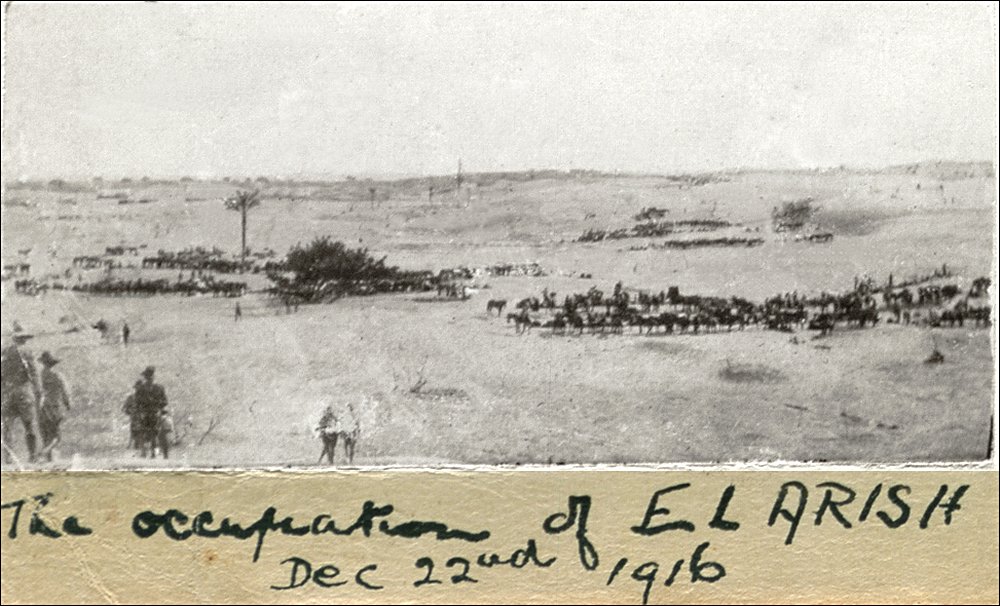 The occupation of EL ARISH
Dec 22nd 1916